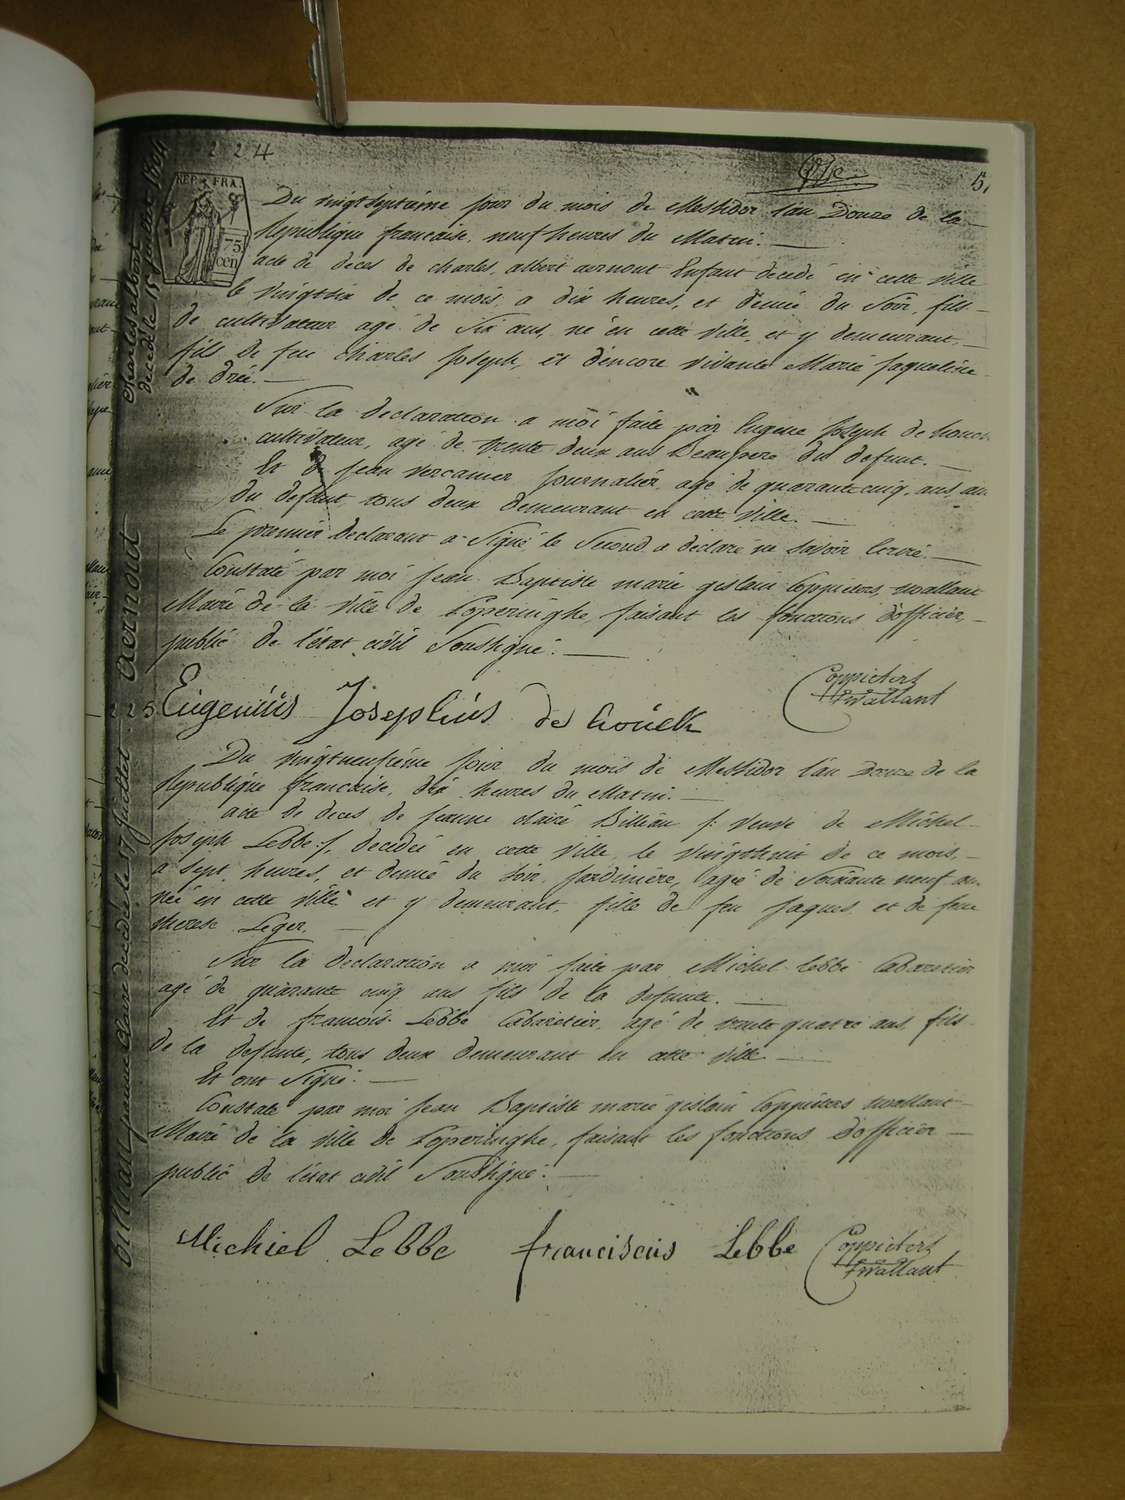 224
5.
REP. FRA.
75
cen
Du vingtseptieme jour du mois de Messidor l'an Douze de la
Republique francaise, neuf heures du Matin.
acte de deces de charles albert aernout Enfant decedé en cette ville
le vingtsix de ce mois a dix heures, et demie du Soir, fils
de cultivateur agé de Six ans, né en cette ville, et y demeurant,
fils de feu charles Joseph, et d'encore vivante Marie Jaqueline
de drée.
Sur la declaration a moi faite par Eugene Joseph de houck
cultivateur, agé de trente deux ans Beaupere du defunt.
Et de Jean vercamer Journalier, agé de quarante cinq, ans,
du defunt, tous deux demeurant en cette ville.
Le premier declarant a Signé, le Second a declaré ne Savoir Ecrire.
Constaté par moi Jean Baptiste marie gislain Coppieters, wallant
Maire de la ville de Poperinghe, faisant les fonctions d'officier
public de l'état civil Soussigné.
Coppieters
wallant
Eugeniüs Josephüs de houck
225
Du vingtneufieme jour du mois de Messidor l'an Douze de la
Republique francaise, dix heures du Matin.
acte de deces de jeanne claire Billiau /: veuve de Michel
Joseph Lebbe :/ decedée en cette ville le vingthuit de ce mois,
a sept heures, et demie du soir, Jardiniere, agée de Soixante neuf an
née en cette ville et y demeurant, fille de feu Jaques, et de feue
therese Leger.
Sur la declaration a moi faite par Michel Lebbe Cabaretier
agé de quarante cinq ans fils de la defunte.
Et de francois Lebbe Cabaretier, agé de trente quatre ans, fils
de la defunte, tous deux demeurant en cette ville
Et ont Signé.
Constaté par moi Jean Baptiste marie gislain Coppieters wallant
Maire de la ville de Poperinghe, faisant les fonctions d'officier
public de l'état civil Soussigné.
Michiel Lebbe franciscus Lebbe
Coppieters
wallant
aernout
charles albert
decedé le 15 juillet 1804
Billiau jeanne Claire decedée le 17 juillet